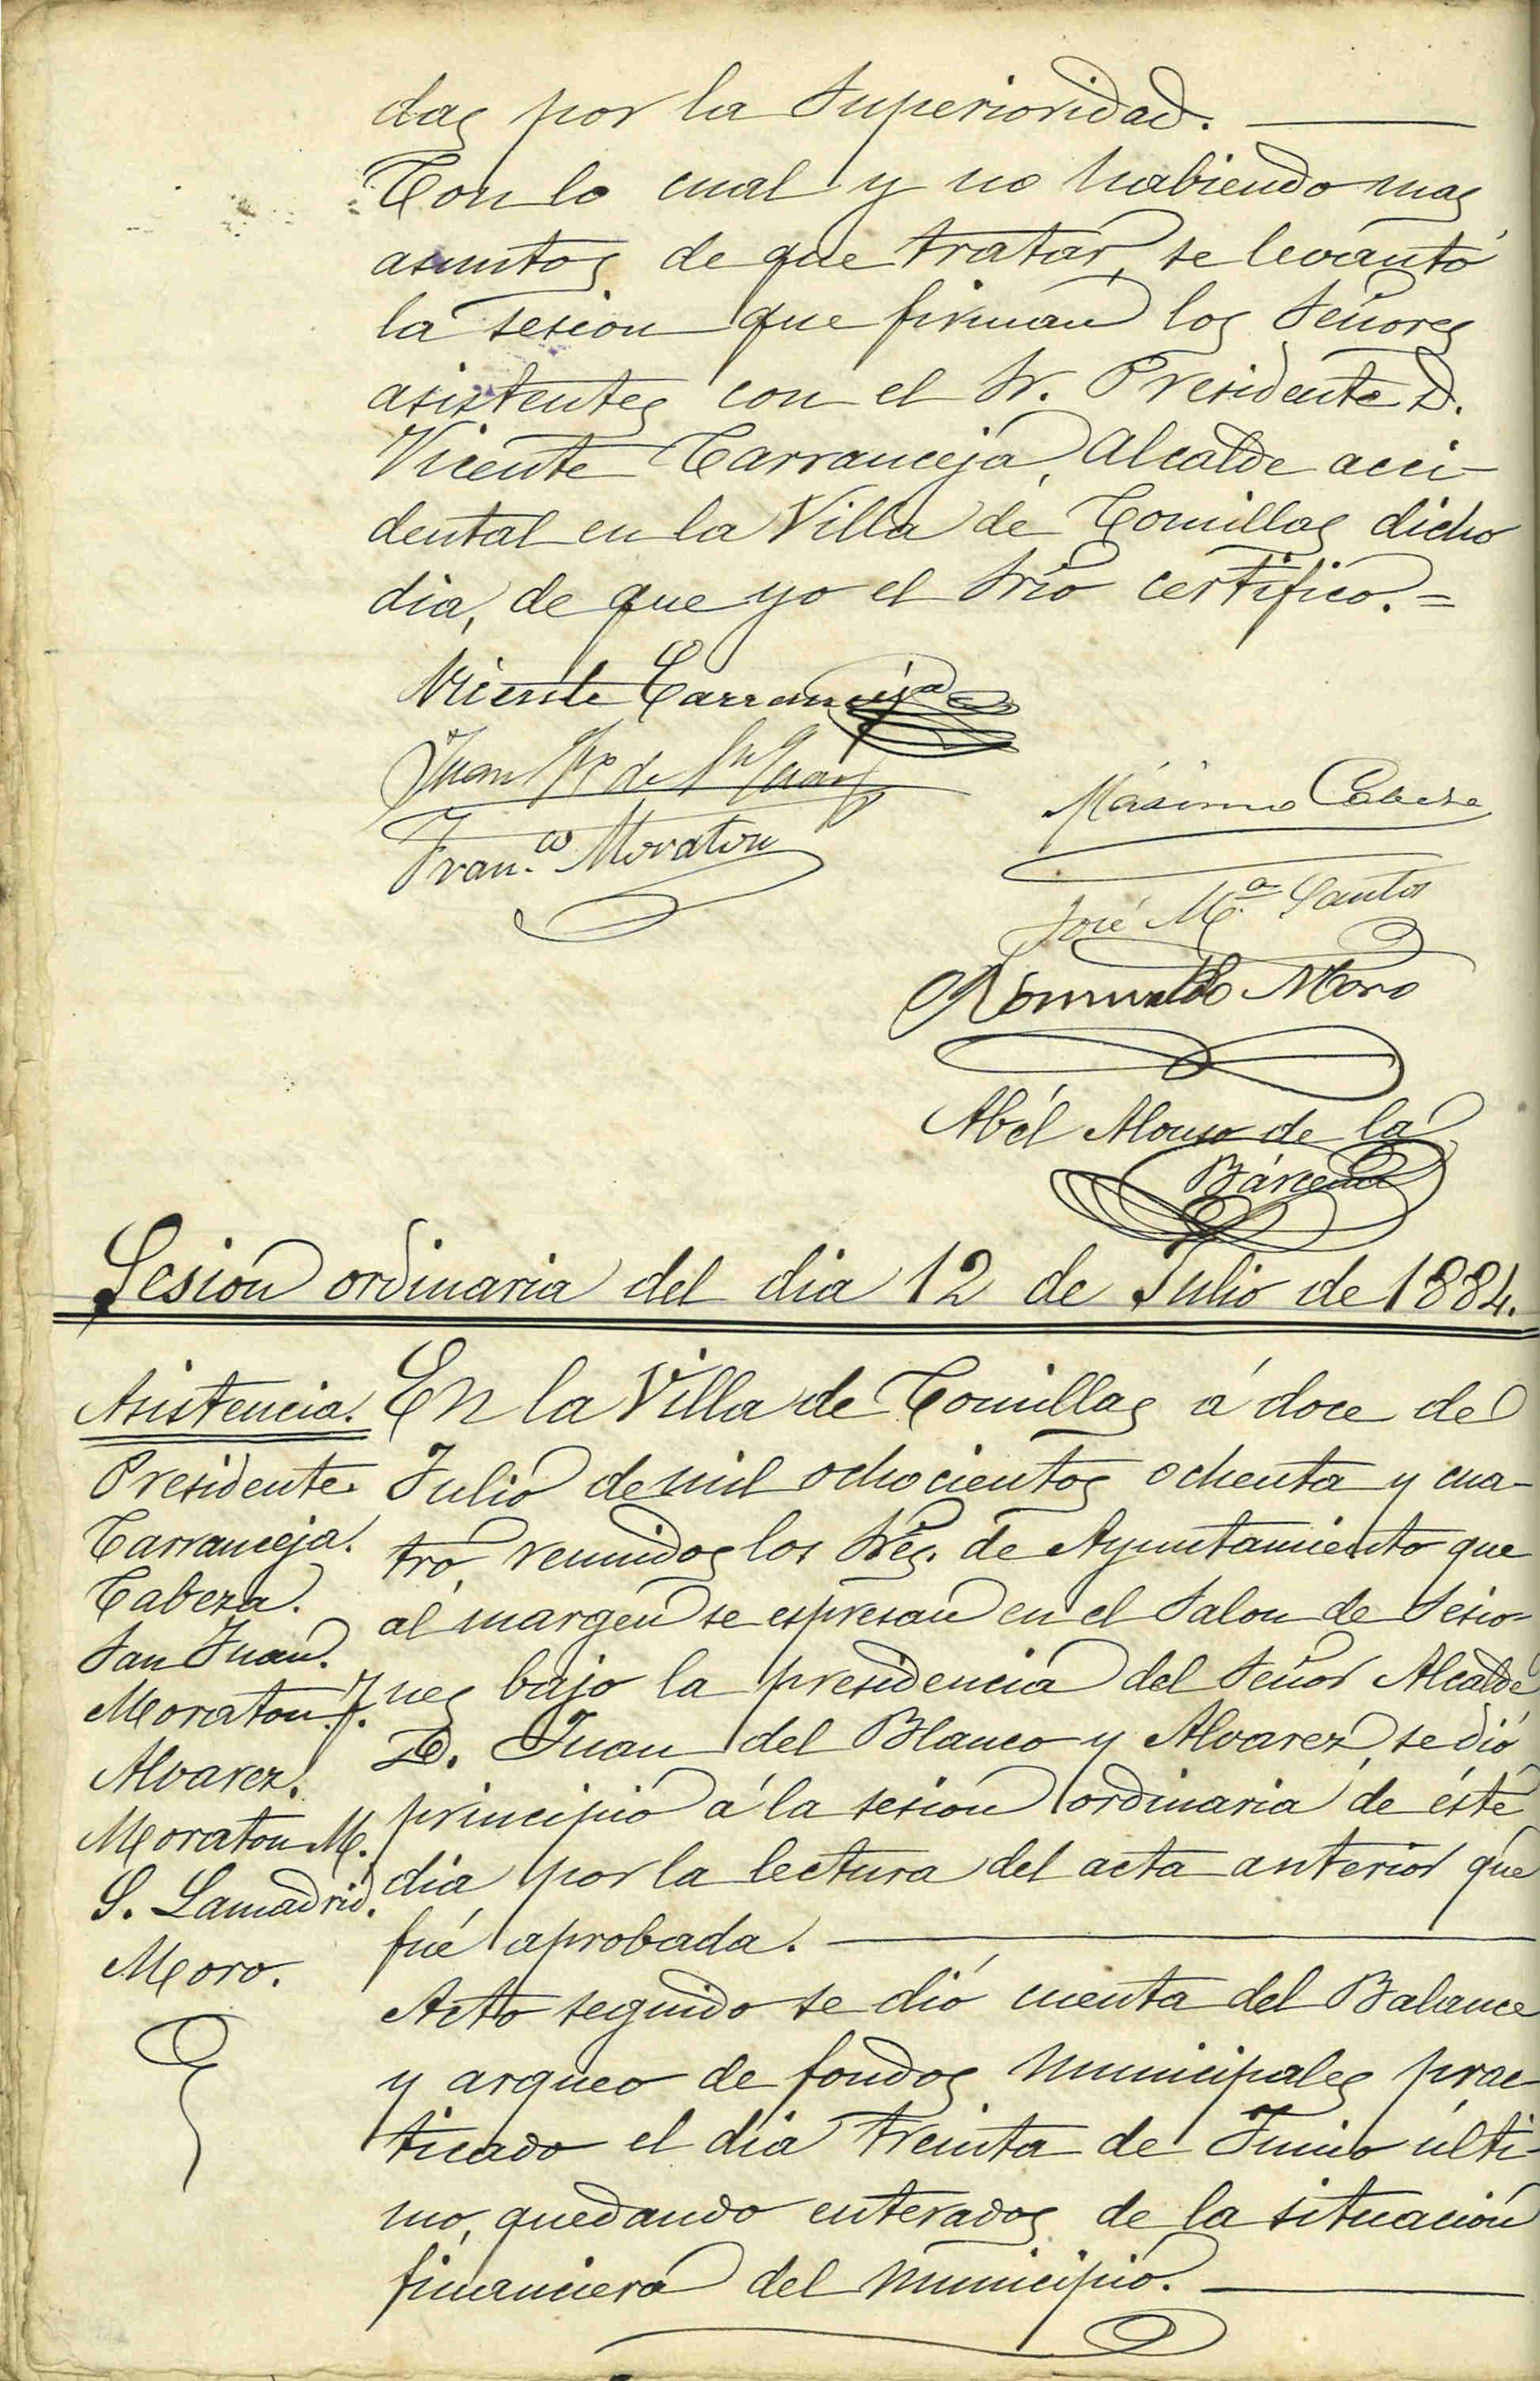 das por la Superioridad.
Con lo cual y no habiendo mas
asuntos de que tratar, se levantó
la sesion que firman los Señores
asistentes con el Sr. Presidente D.
Vicente Carranceja, Alcalde acci-
dental en la Villa de Comillas dicho
dia, de que yo el Srio certifico.=
Vicente Carranceja
Juan de Sn Juan
Fran.co Moraton
Másimo Cabeza
José M.a Santos
Romualdo Moro
Abél Alonso de la
Bárcena
Sesion ordinaria del dia 12 de Julio de 1884.
Asistencia.
Presidente.
Carranceja.
Cabeza.
San Juan.
Moraton. J.
Alvarez.
Moraton M.
S. Lamadrid.
Moro.
En la Villa de Comillas á doce de
Julio de mil ochocientos ochenta y cua-
tro, reunidos los Sres. de Ayuntamiento que
al margen se espresan en el Salon de Sesio-
nes bajo la presidencia del Señor Alcalde
D. Juan del Blanco y Alvarez, se dió
principio á la sesion ordinaria de éste
dia por la lectura del acta anterior que
fué aprobada.
Acto seguido se dió cuenta del Balance
y arqueo de fondos municipales prac-
ticado el dia treinta de Junio últi-
mo, quedando enterados de la situación
financiera del municipio.